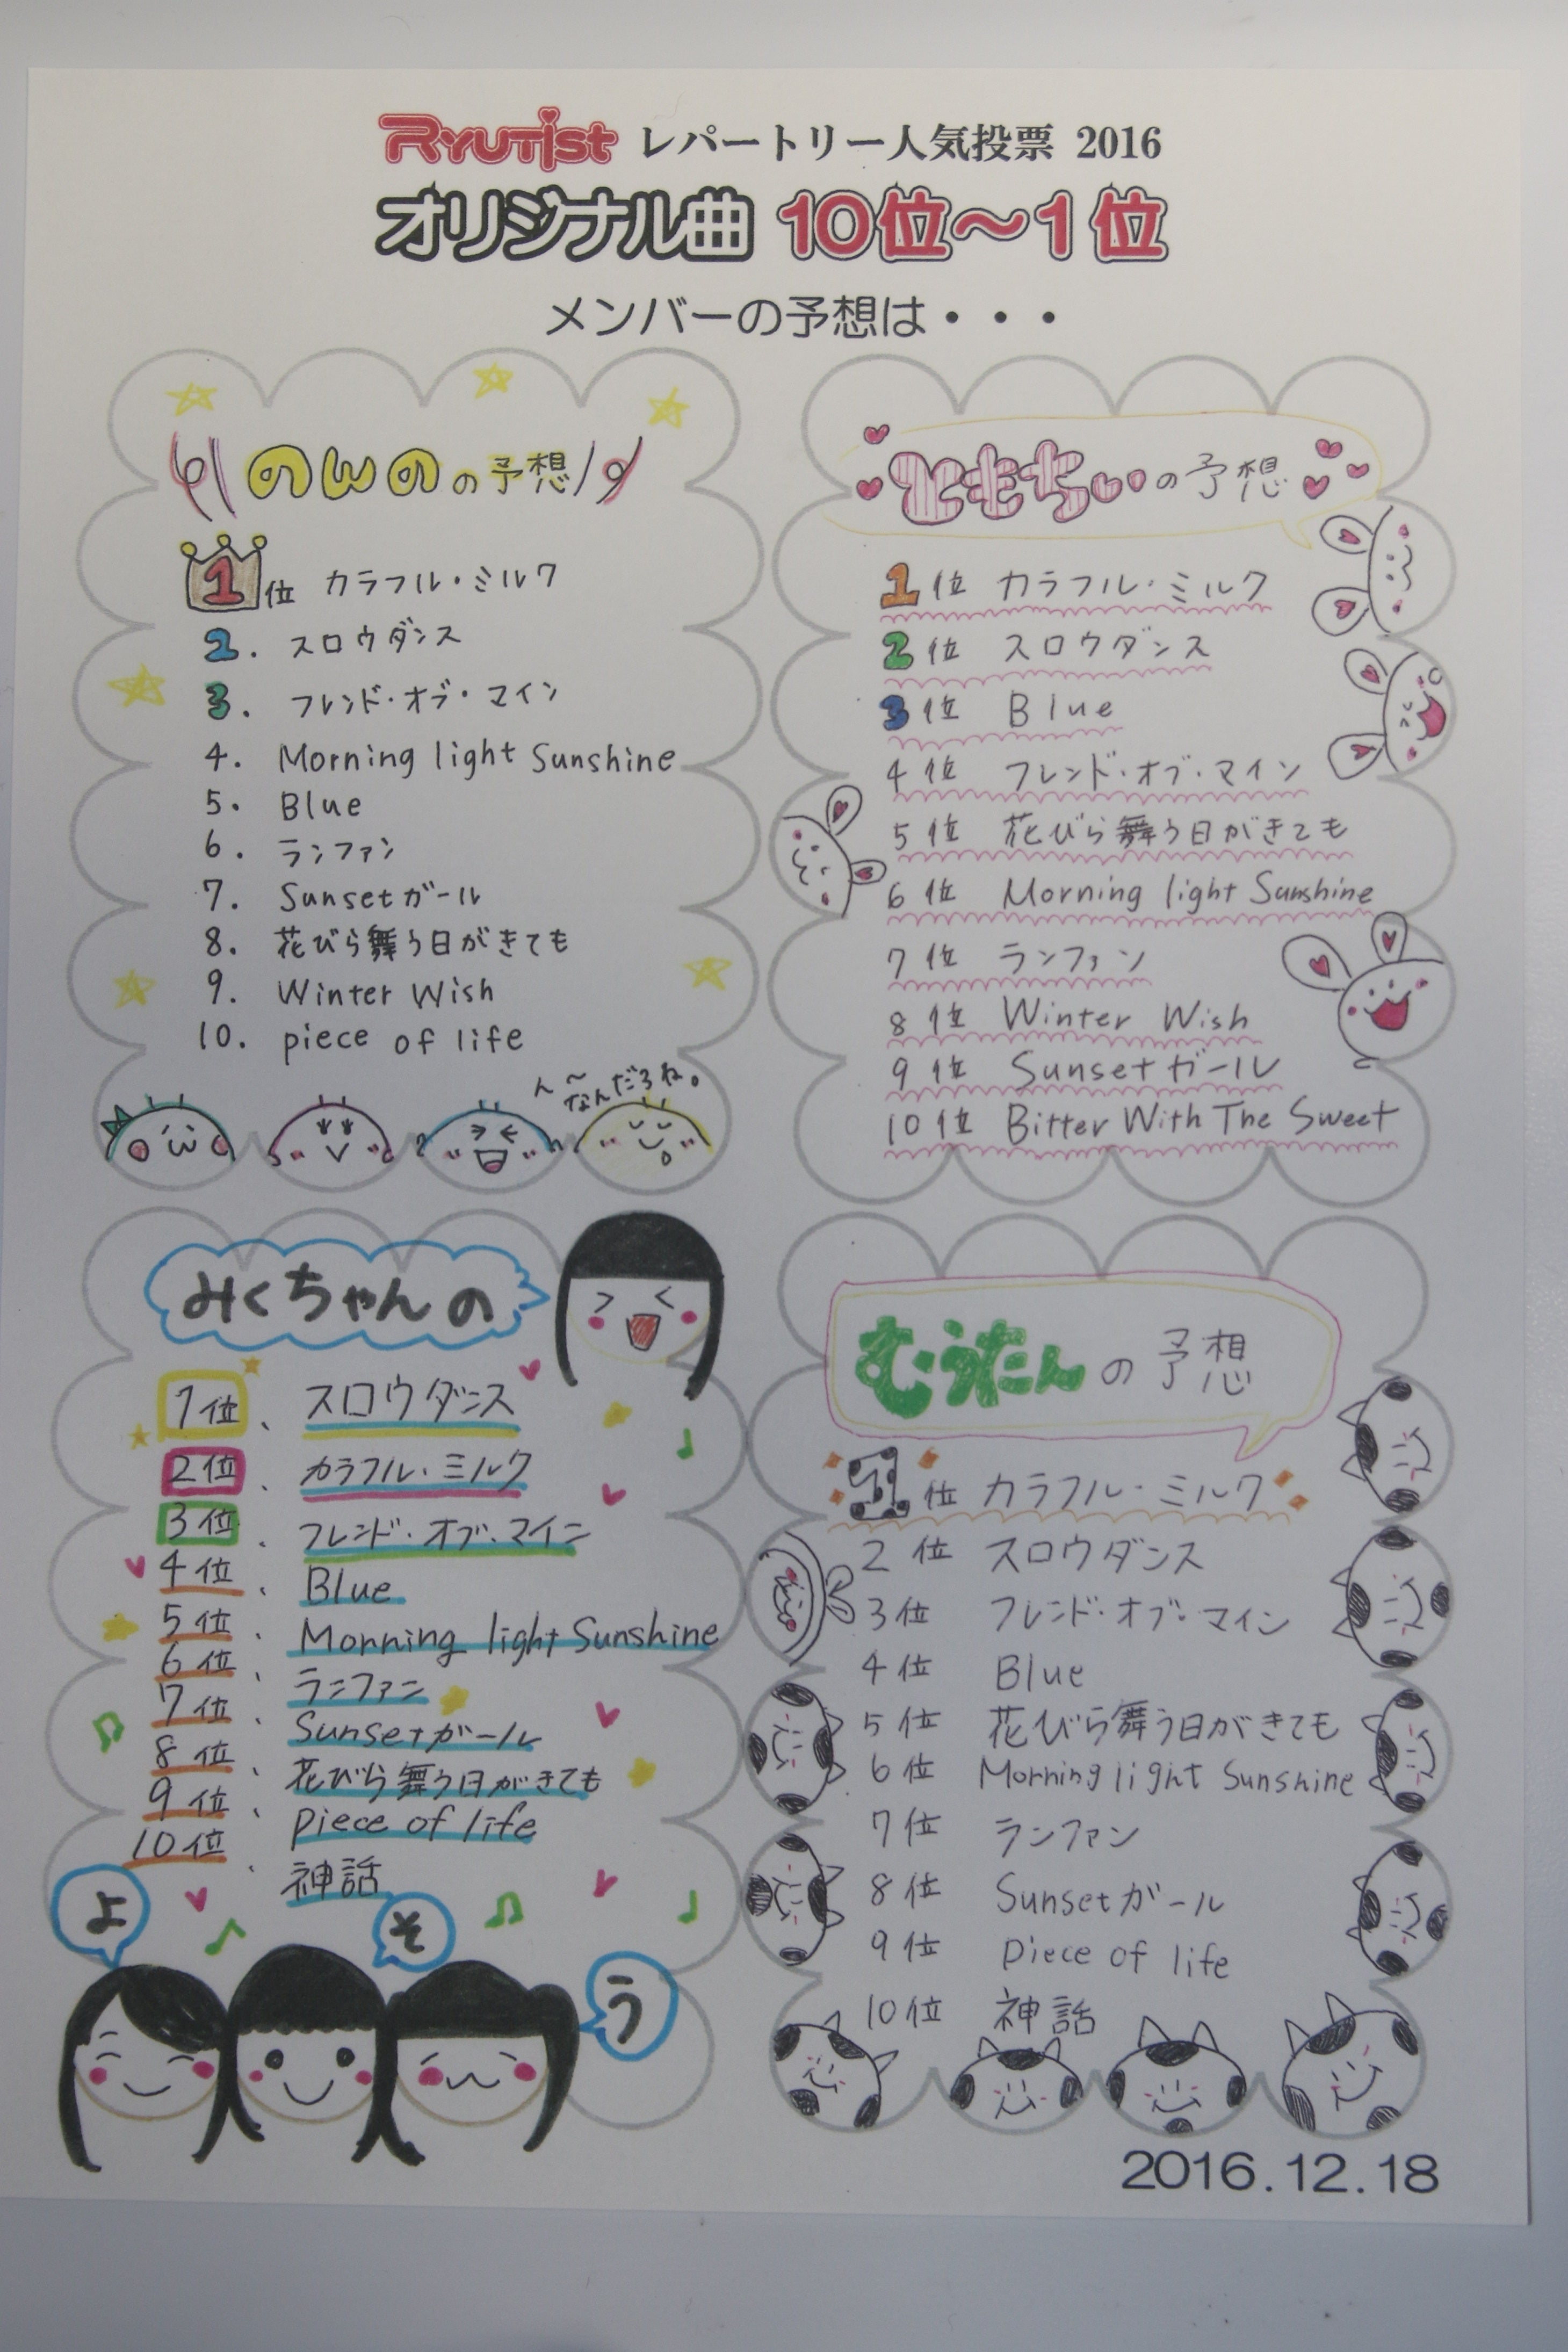 RYUTist レパートリー人気投票 2016
オリジナル曲 10位～1位
メンバーの予想は・・・
のんのの予想
1位 カラフル・ミルク
2. スロウダンス
3. フレンド・オブ・マイン
4. Morning light Sunshine
5. Blue
6. ランファン
7. Sunsetガール
8. 花びら舞う日がきても
9. Winter Wish
10. piece of life
ん～
なんだろね。
ともちぃの予想
1位 カラフル・ミルク
2位 スロウダンス
3位 Blue
4位 フレンド・オブ・マイン
5位 花びら舞う日がきても
6位 Morning light Sunshine
7位 ランファン
8位 Winter Wish
9位 Sunsetガール
10位 Bitter With The Sweet
みくちゃんの
1位、スロウダンス
2位、カラフル・ミルク
3位、フレンド・オブ・マイン
4位、Blue
5位、Morning light Sunshine
6位、ランファン
7位、Sunsetガール
8位、花びら舞う日がきても
9位、piece of life
10位、神話
よ
そ
う
むぅたんの予想
1位 カラフル・ミルク
2位 スロウダンス
3位 フレンド・オブ・マイン
4位 Blue
5位 花びら舞う日がきても
6位 Morning light Sunshine
7位 ランファン
8位 Sunsetガール
9位 piece of life
10位 神話
2016.12.18